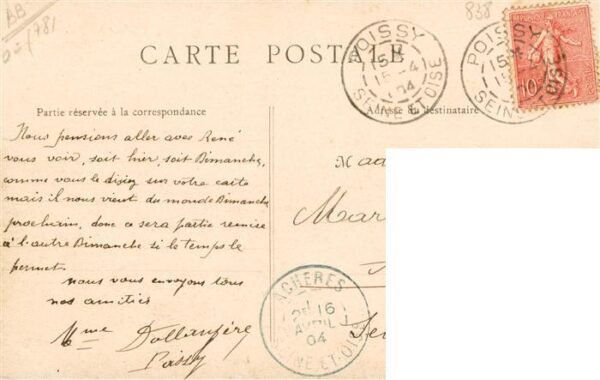 BB
838
CARTE POSTALE
POISSY
15 - 4
04
SEINE-ET-OISE
POISSY
SEINE
OISE
10
Partie réservée à la correspondance
Adresse du destinataire
Nous pensions aller avec René
vous voir, soit hier, soit Dimanche,
comme vous le disiez sur votre carte
mais il nous vient du monde Dimanche
prochain, donc ce sera partie remise
à l'autre Dimanche si le temps le
permet.
nous vous envoyons tous
nos amitiés
Mme
Poissy
Mad
Mar
ACHERES
16
AVRIL
04
SEINE-ET-OISE